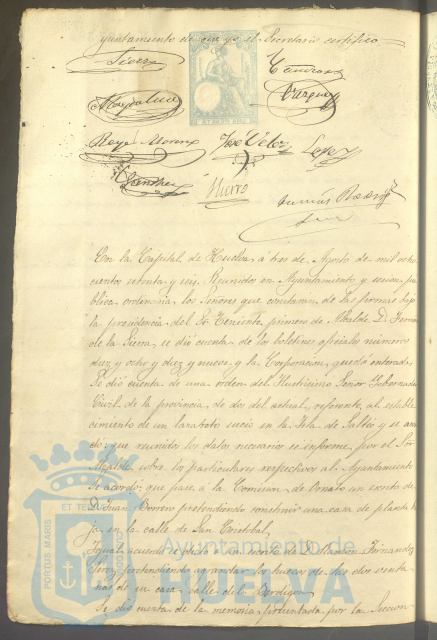 Ayuntamiento de que yo el Secretario certifico
Sierra
Vazquez
José Velez
Lopez
Sanchez
Hierro
Tomás
En la Capital de Huelva á tres de Agosto de mil ocho
cientos setenta y seis, Reunidos en Ayuntamiento y sesion pu
blica ordinaria, los Señores que constaran de las firmas bajo
la presidencia del Sr. Teniente primero de Alcalde D. Fernan
de la Sierra, se dio cuenta de los boletines oficiales numeros
diez y ocho y diez y nueve y la Corporacion quedó enterada.
Se dio cuenta de una orden del Ilustrisimo Señor Gobernador
Civil de la provincia de dos del actual, referente al estable
cimiento de un lazareto sucio en la Isla de Saltés y se acor
dó que reunidos los datos necesarios se informe por el Sor
Alcalde sobre los particulares respectivos al Ayuntamiento
Se acordó que pase á la Comision de Ornato un escrito de
D. Juan Borrero pretendiendo construir una casa de planta ba
ja en la calle de San Cristobal,
Igual acuerdo se dictó á un escrito de D. Ramon Fernandez
pretendiendo agrandar los huecos de las dos venta
nas de su casa calle del
Se dio cuenta de la memoria presentada por la Seccion
PORTUS MARIS ET TERRAE CUSTODIA
Ayuntamiento de
HUELVA